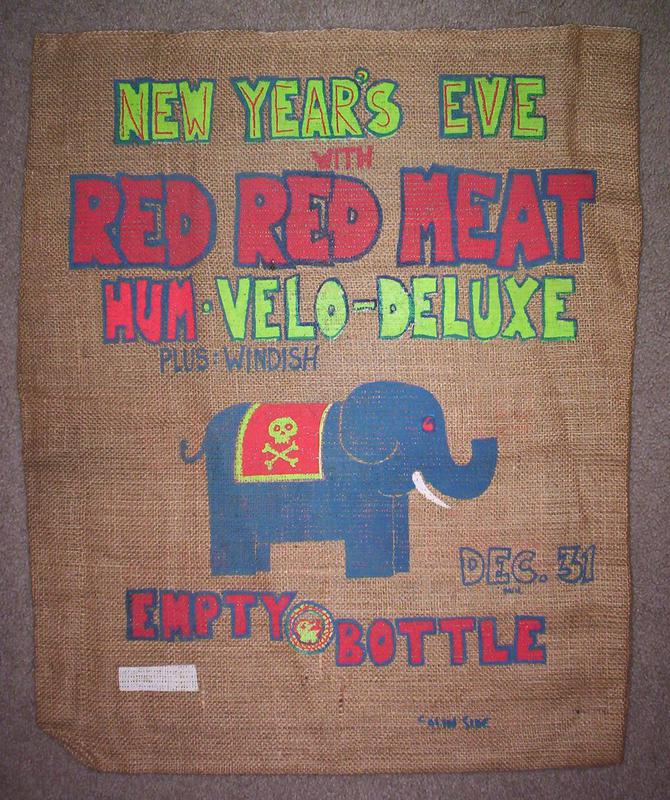 NEW YEAR'S EVE
WITH
RED RED MEAT
HUM • VELO-DELUXE
PLUS: WINDISH
DEC. 31
EMPTY BOTTLE